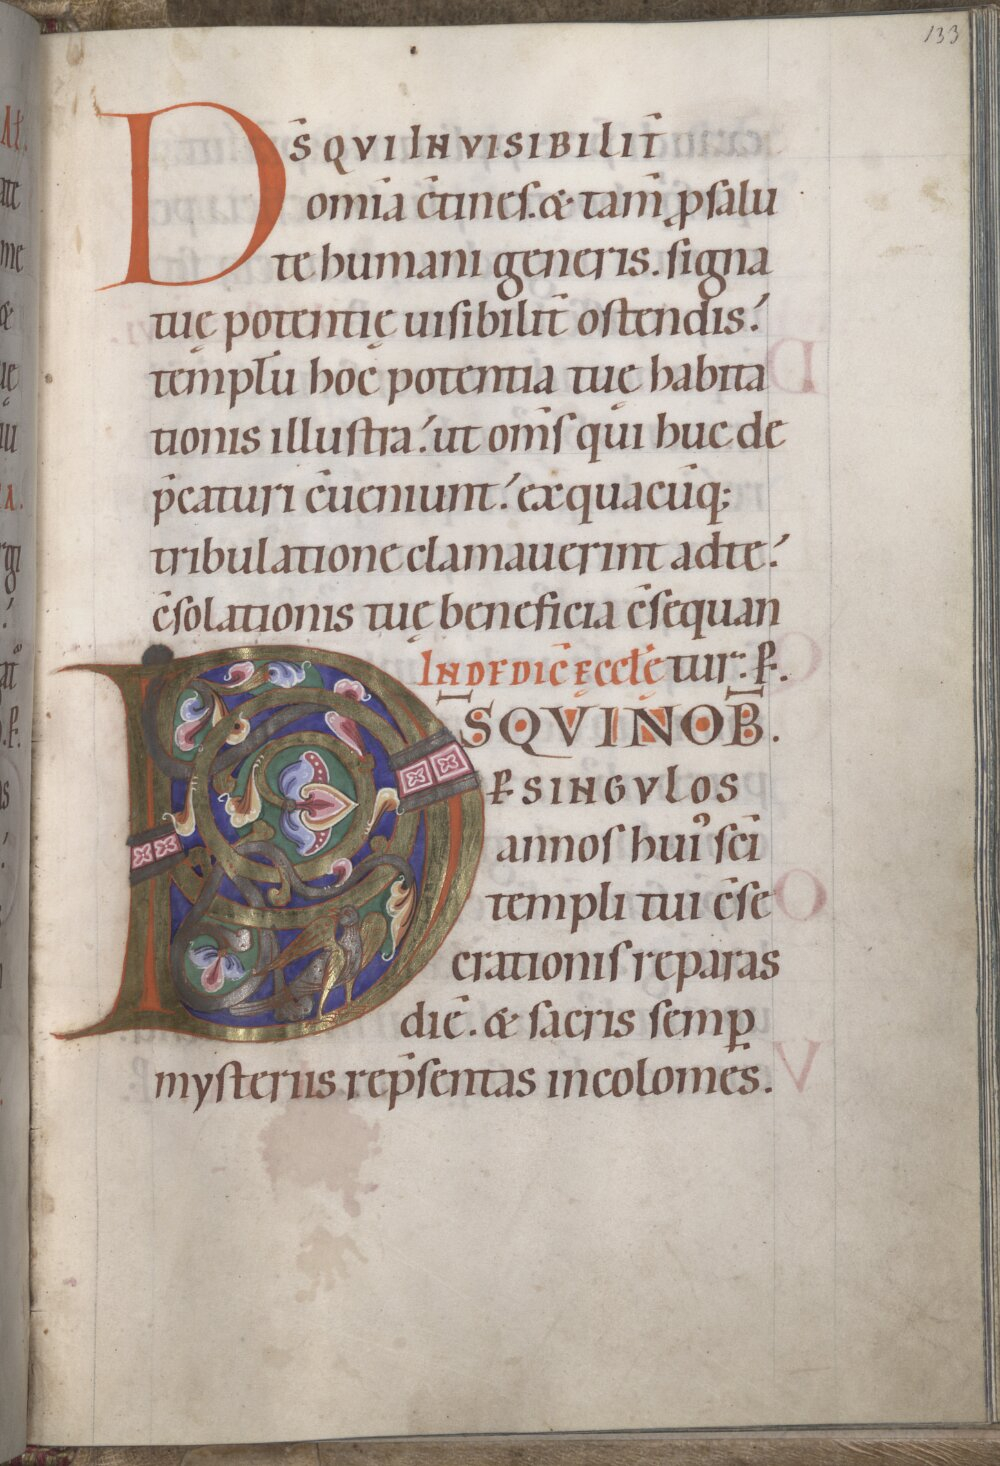 133
D̅S̅ QVI INVISIBILIT̅
om̅ia c̅tines. & tam̅ ꝓ salu
te humani generis. signa
tuę potentię uisibilit̅ ostendis.
templu̅ hoc potentia tuę habita
tionis illustra. ut om̅s qui huc de
p̅caturi c̅ueniunt. ex quacu̅q;
tribulatione clamauerint ad te.
c̅solationis tuę beneficia c̅sequan
IN DEDIC̅ ĘCCL̅Ę tur. P̲.
D̅S̅ QVI NOB̅.
P̲ SINGVLOS
annos hui᾿ sc̅i
templi tui c̅se
crationis reparas
die̅. & sacris semp̲
mysteriis rep̅sentas incolomes.